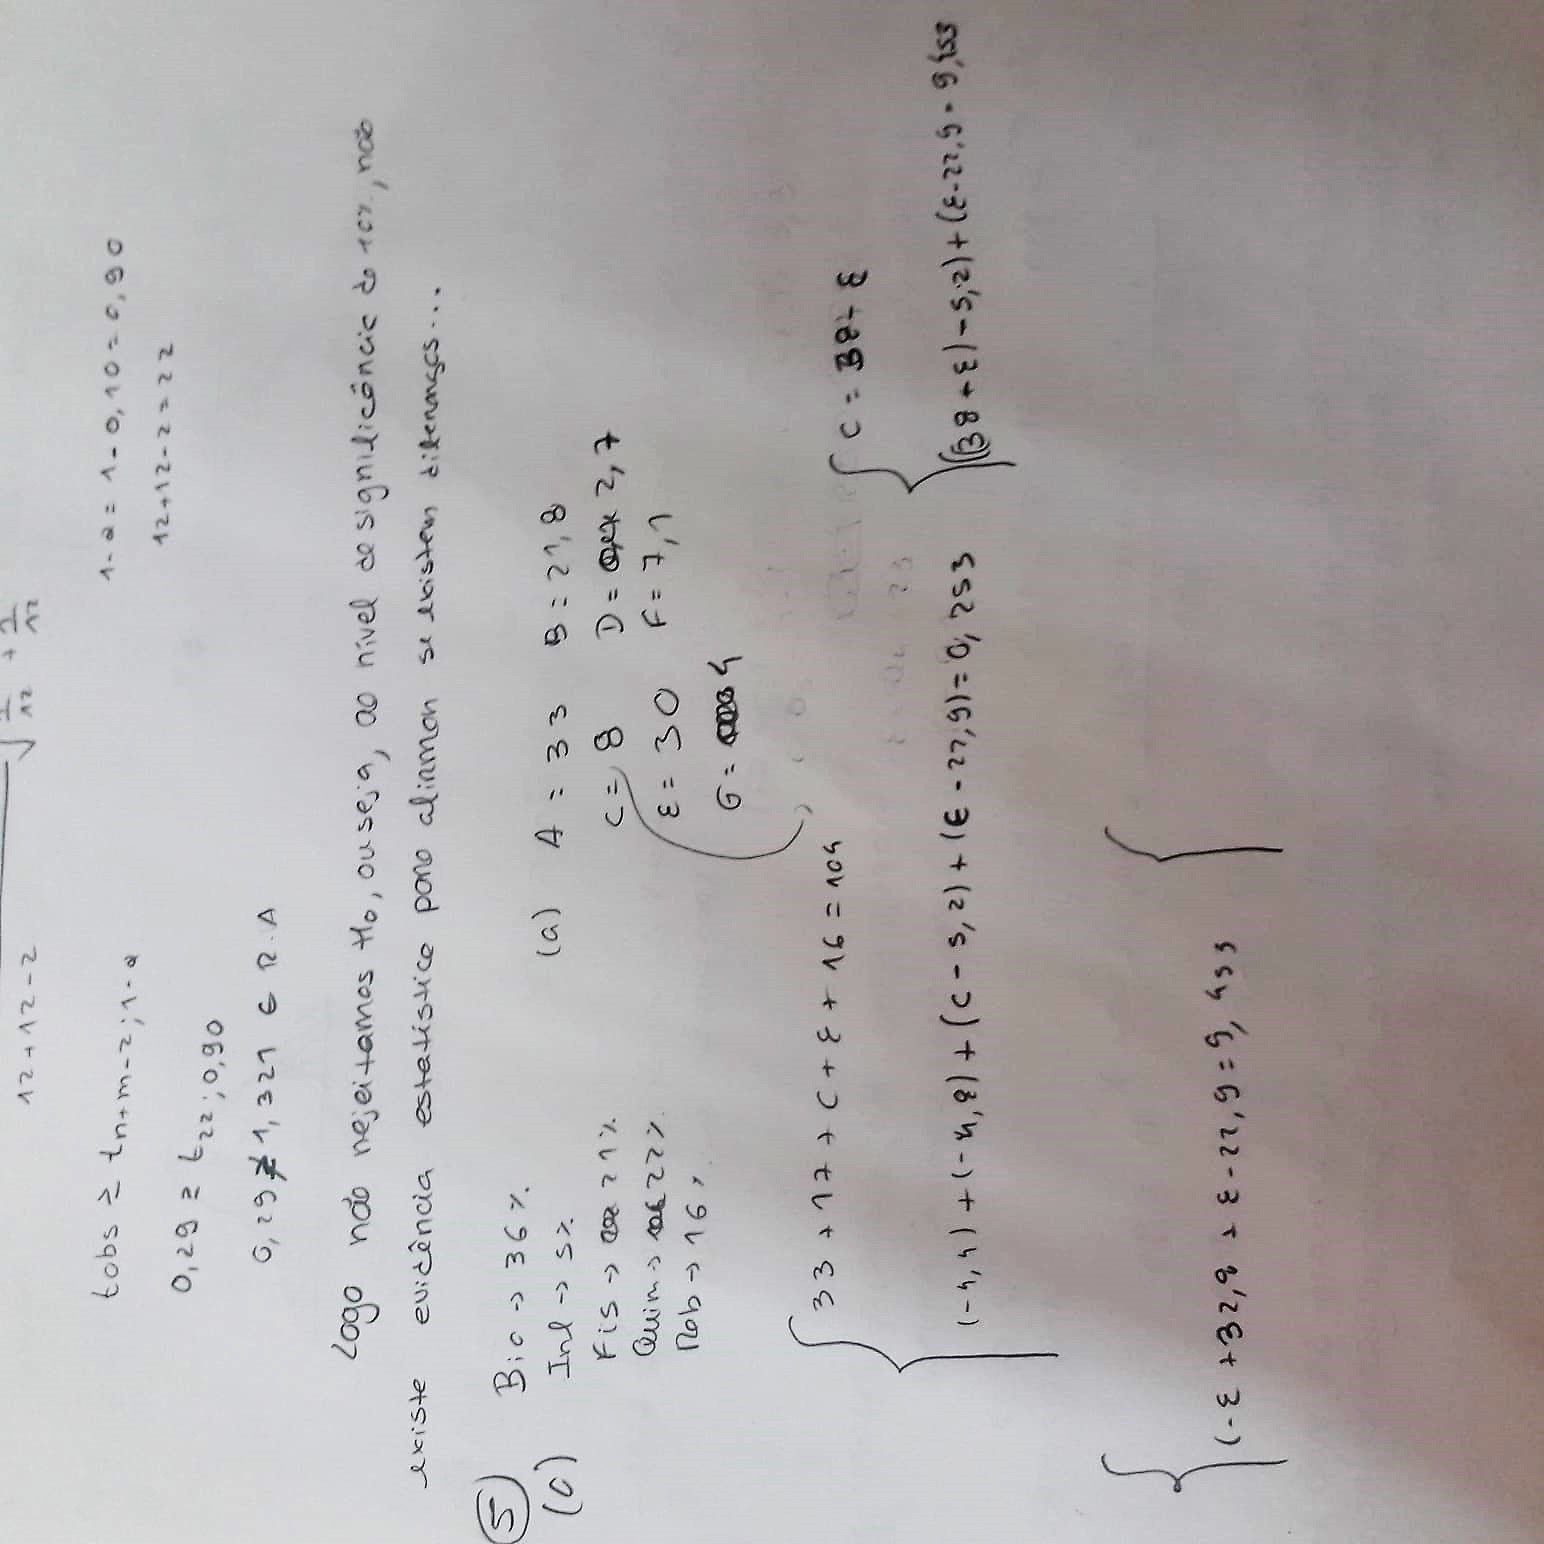 12+12-2 √ 1/12 + 1/12
tobs ≥ tn+m-2;1-α
1-α = 1-0,10=0,90
12+12-2=22
0,29 ≥ t22;0,90
0,29 ≱ 1,321 ∈ R.A
Logo não rejeitamos H0, ou seja, ao nível de significância de 10%, não
existe evidência estatística para afirmar se existem diferenças...
5
(c)
Bio → 36%
Inf → 5%
Fis → 21%
Quim → 22%
Rob → 16%
(a) A = 33 B = 21,8
C = 8 D = 2,7
E = 30 F = 7,1
G = 4
33 + 17 + C + E + 16 = 104
C = 38 - E
(-4,4) + (-4,8) + (C - 5,2) + (E - 22,9) = 0,253
((38 - E) - 5,2) + (E - 22,9 = 9,453
(-E + 32,8 + E - 22,9 = 9,453